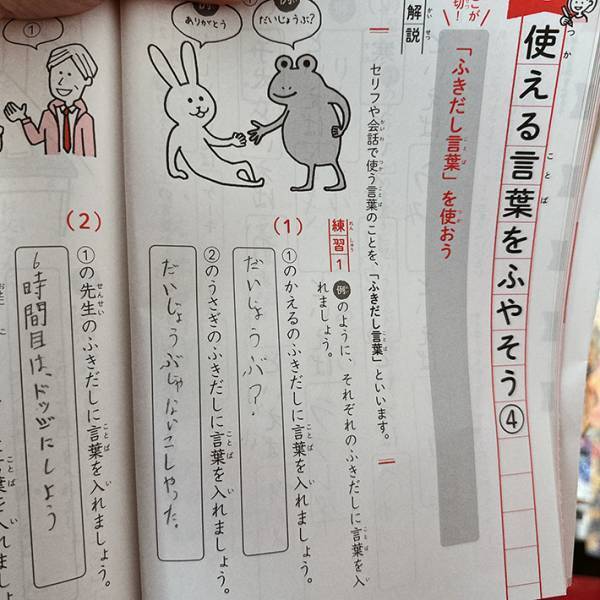 使える言葉をふやそう④
つか
ことば
「ふきだし言葉」を使おう
ことば
つか
解説
かいせつ
セリフや会話で使う言葉のことを、「ふきだし言葉」といいます。
だいじょうぶ?
ありがとう
練習1
れんしゅう
例のように、それぞれのふきだしに言葉を入
れましょう。
(1)
①のかえるのふきだしに言葉を入れましょう。
だいじょうぶ?
②のうさぎのふきだしに言葉を入れましょう。
だいじょうぶじゃないこしやった。
①
(2)
①の先生のふきだしに言葉を入れましょう。
せんせい
6時間目は、ドッヂにしよう